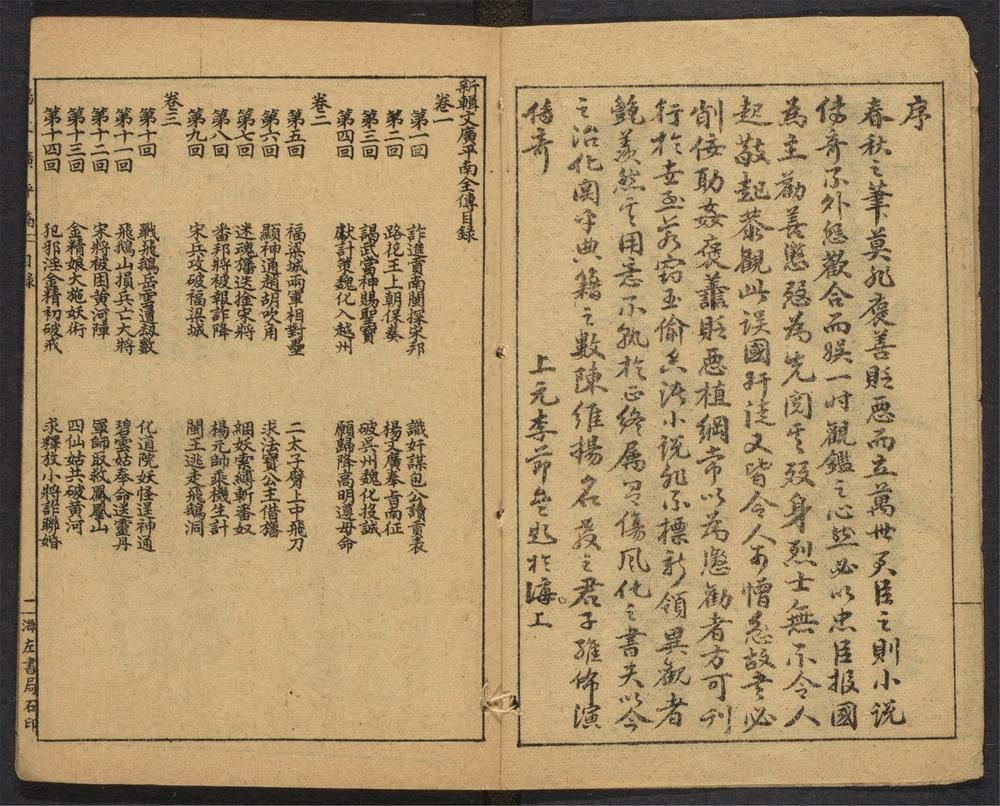 序
春秋之筆莫非褒善貶惡而立萬世天臣之則小説
傳奇不外悲歡合而娛一时觀鑑之心然必以忠臣报國
為主勸善懲惡為先閲其殁身烈士無不令人
起敬起恭觀此误國奸徒又皆令人可憎忿故書必
削佞助姦褒善貶惡植綱常以為懲勸者方可刊
行於世至若窃玉偷香淫小说非不標新領異觀者
艷羡然其用意不軌於正終属傷风化之書夫以今
之治化関乎典籍之數陳維揚名教之君子雅俗演
傳奇
上元李節齋題於海上
新輯文廣平南全傳目録
卷一
第一回 詐進貢南閩探宋邦 識奸謀包公讀貢表
第二回 路花王上朝保奏 楊文廣奉旨南征
第三回 謁武當神賜聖寶 破吳州魏化投誠
第四回 獻計策魏化入越州 願歸降高明遵母命
卷二
第五回 福梁城兩軍相對壘 二太子臂上中飛刀
第六回 顯神通趙胡吹角 求法寶公主借旛
第七回 迷魂旛送捨宋將 綑妖索縛斬番奴
第八回 番邦將被報詐降 楊元帥乘機生計
第九回 宋兵攻破福梁城 閩王逃走飛鵝洞
卷三
第十回 戰飛鵝岳雲遭劫數 化道院妖怪逞神通
第十一回 飛鵝山損兵亡大將 碧雲姑奉命送靈丹
第十二回 宋將被困黃河陣 軍師取救鳳凰山
第十三回 金精娘大施妖術 四仙姑共破黃河
第十四回 犯邪淫金精初破戒 求釋放小將詐聯婚
廣平南 目録
二 海左書局石印